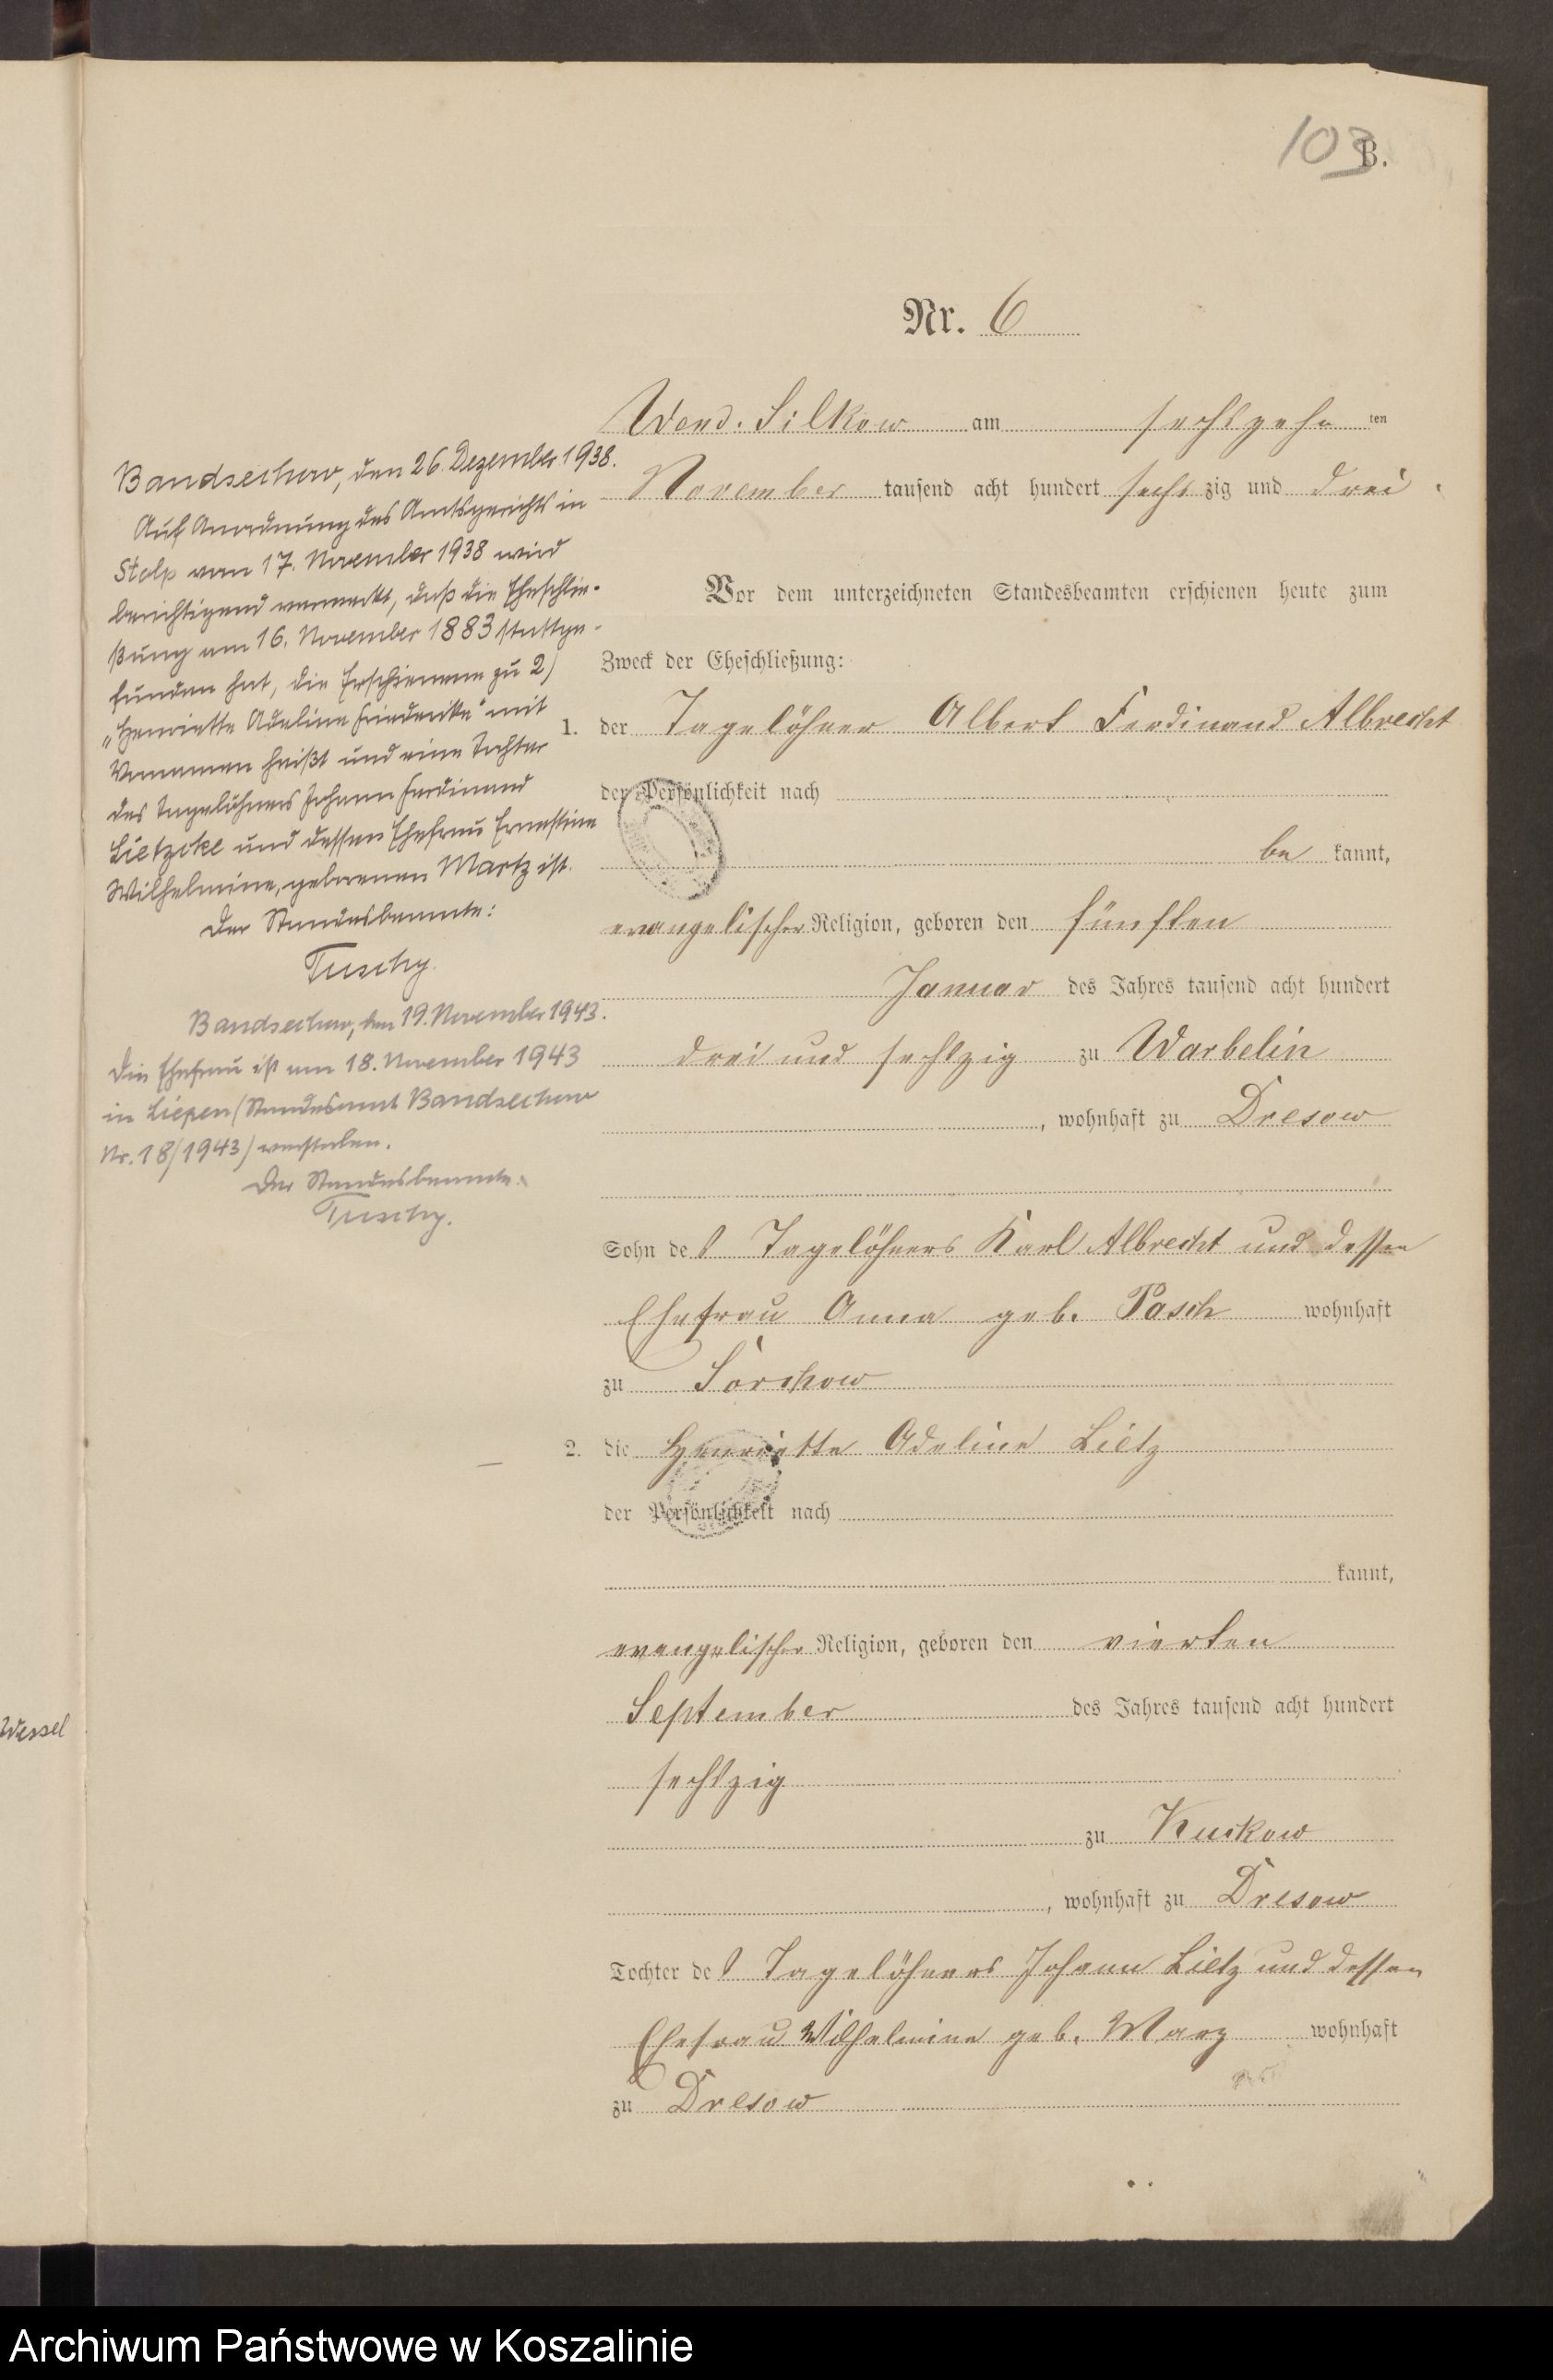 103
B.
Nr. 6
Wend. Silkow am sechszehnten
November tausend acht hundert sechszig und drei.
Vor dem unterzeichneten Standesbeamten erschienen heute zum
Zweck der Eheschließung:
1. der Tagelöhner Albert Ferdinand Albrecht
der Persönlichkeit nach
be kannt,
evangelischer Religion, geboren den fünften
Januar des Jahres tausend acht hundert
drei und sechszig zu Warbelin
, wohnhaft zu Dresow
Sohn des Tagelöhners Karl Albrecht und dessen
Ehefrau Anna geb. Pasch wohnhaft
zu Sorchow
2. die Henriette Adeline Lietz
der Persönlichkeit nach
kannt,
evangelischer Religion, geboren den vierten
September des Jahres tausend acht hundert
sechszig
zu Kuckow
, wohnhaft zu Dresow
Tochter des Tagelöhners Johann Lietz und dessen
Ehefrau Wilhelmine geb. Marz wohnhaft
zu Dresow
Bandsechow, den 26. Dezember 1938.
Auf Anordnung des Amtsgerichts in
Stolp vom 17. November 1938 wird
berichtigend vermerkt, daß die Eheschlie-
ßung am 16. November 1883 stattge-
funden hat, die Erschienene zu 2)
„Henriette Adeline Friederike" mit
Vornamen heißt und eine Tochter
des Tagelöhners Johann Ferdinand
Lietzcke und dessen Ehefrau Ernestine
Wilhelmine, geborenen Martz ist.
Der Standesbeamte:
Tuschy.
Bandsechow, den 19. November 1943.
Die Ehefrau ist am 18. November 1943
in Liepen (Standesamt Bandsechow
Nr. 18/1943) verstorben.
Der Standesbeamte.
Tuschy.
Wessel
Archiwum Państwowe w Koszalinie